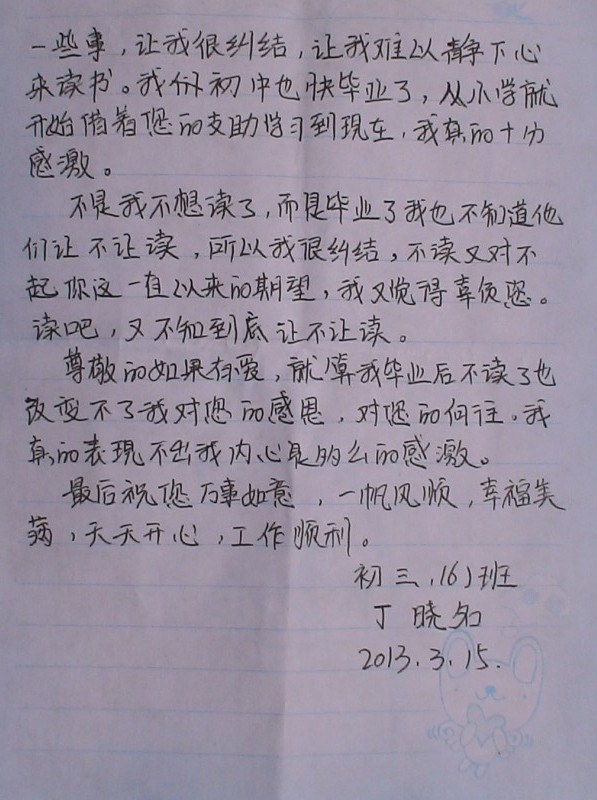 一些事，让我很纠结，让我难以静下心
来读书。我们初中也快毕业了，从小学就
开始借着您的支助学习到现在，我真的十分
感激。
不是我不想读了，而是毕业了我也不知道他
们让不让读，所以我很纠结，不读又对不
起你这一直以来的期望，我又觉得辜负您。
读吧，又不知到底让不让读。
尊敬的如果有爱，就算我毕业后不读了也
改变不了我对您的感恩，对您的向往。我
真的表现不出我内心是多么的感激。
最后祝您万事如意，一帆风顺，幸福美
满，天天开心，工作顺利。
初三（16）班
丁晓
2013.3.15.